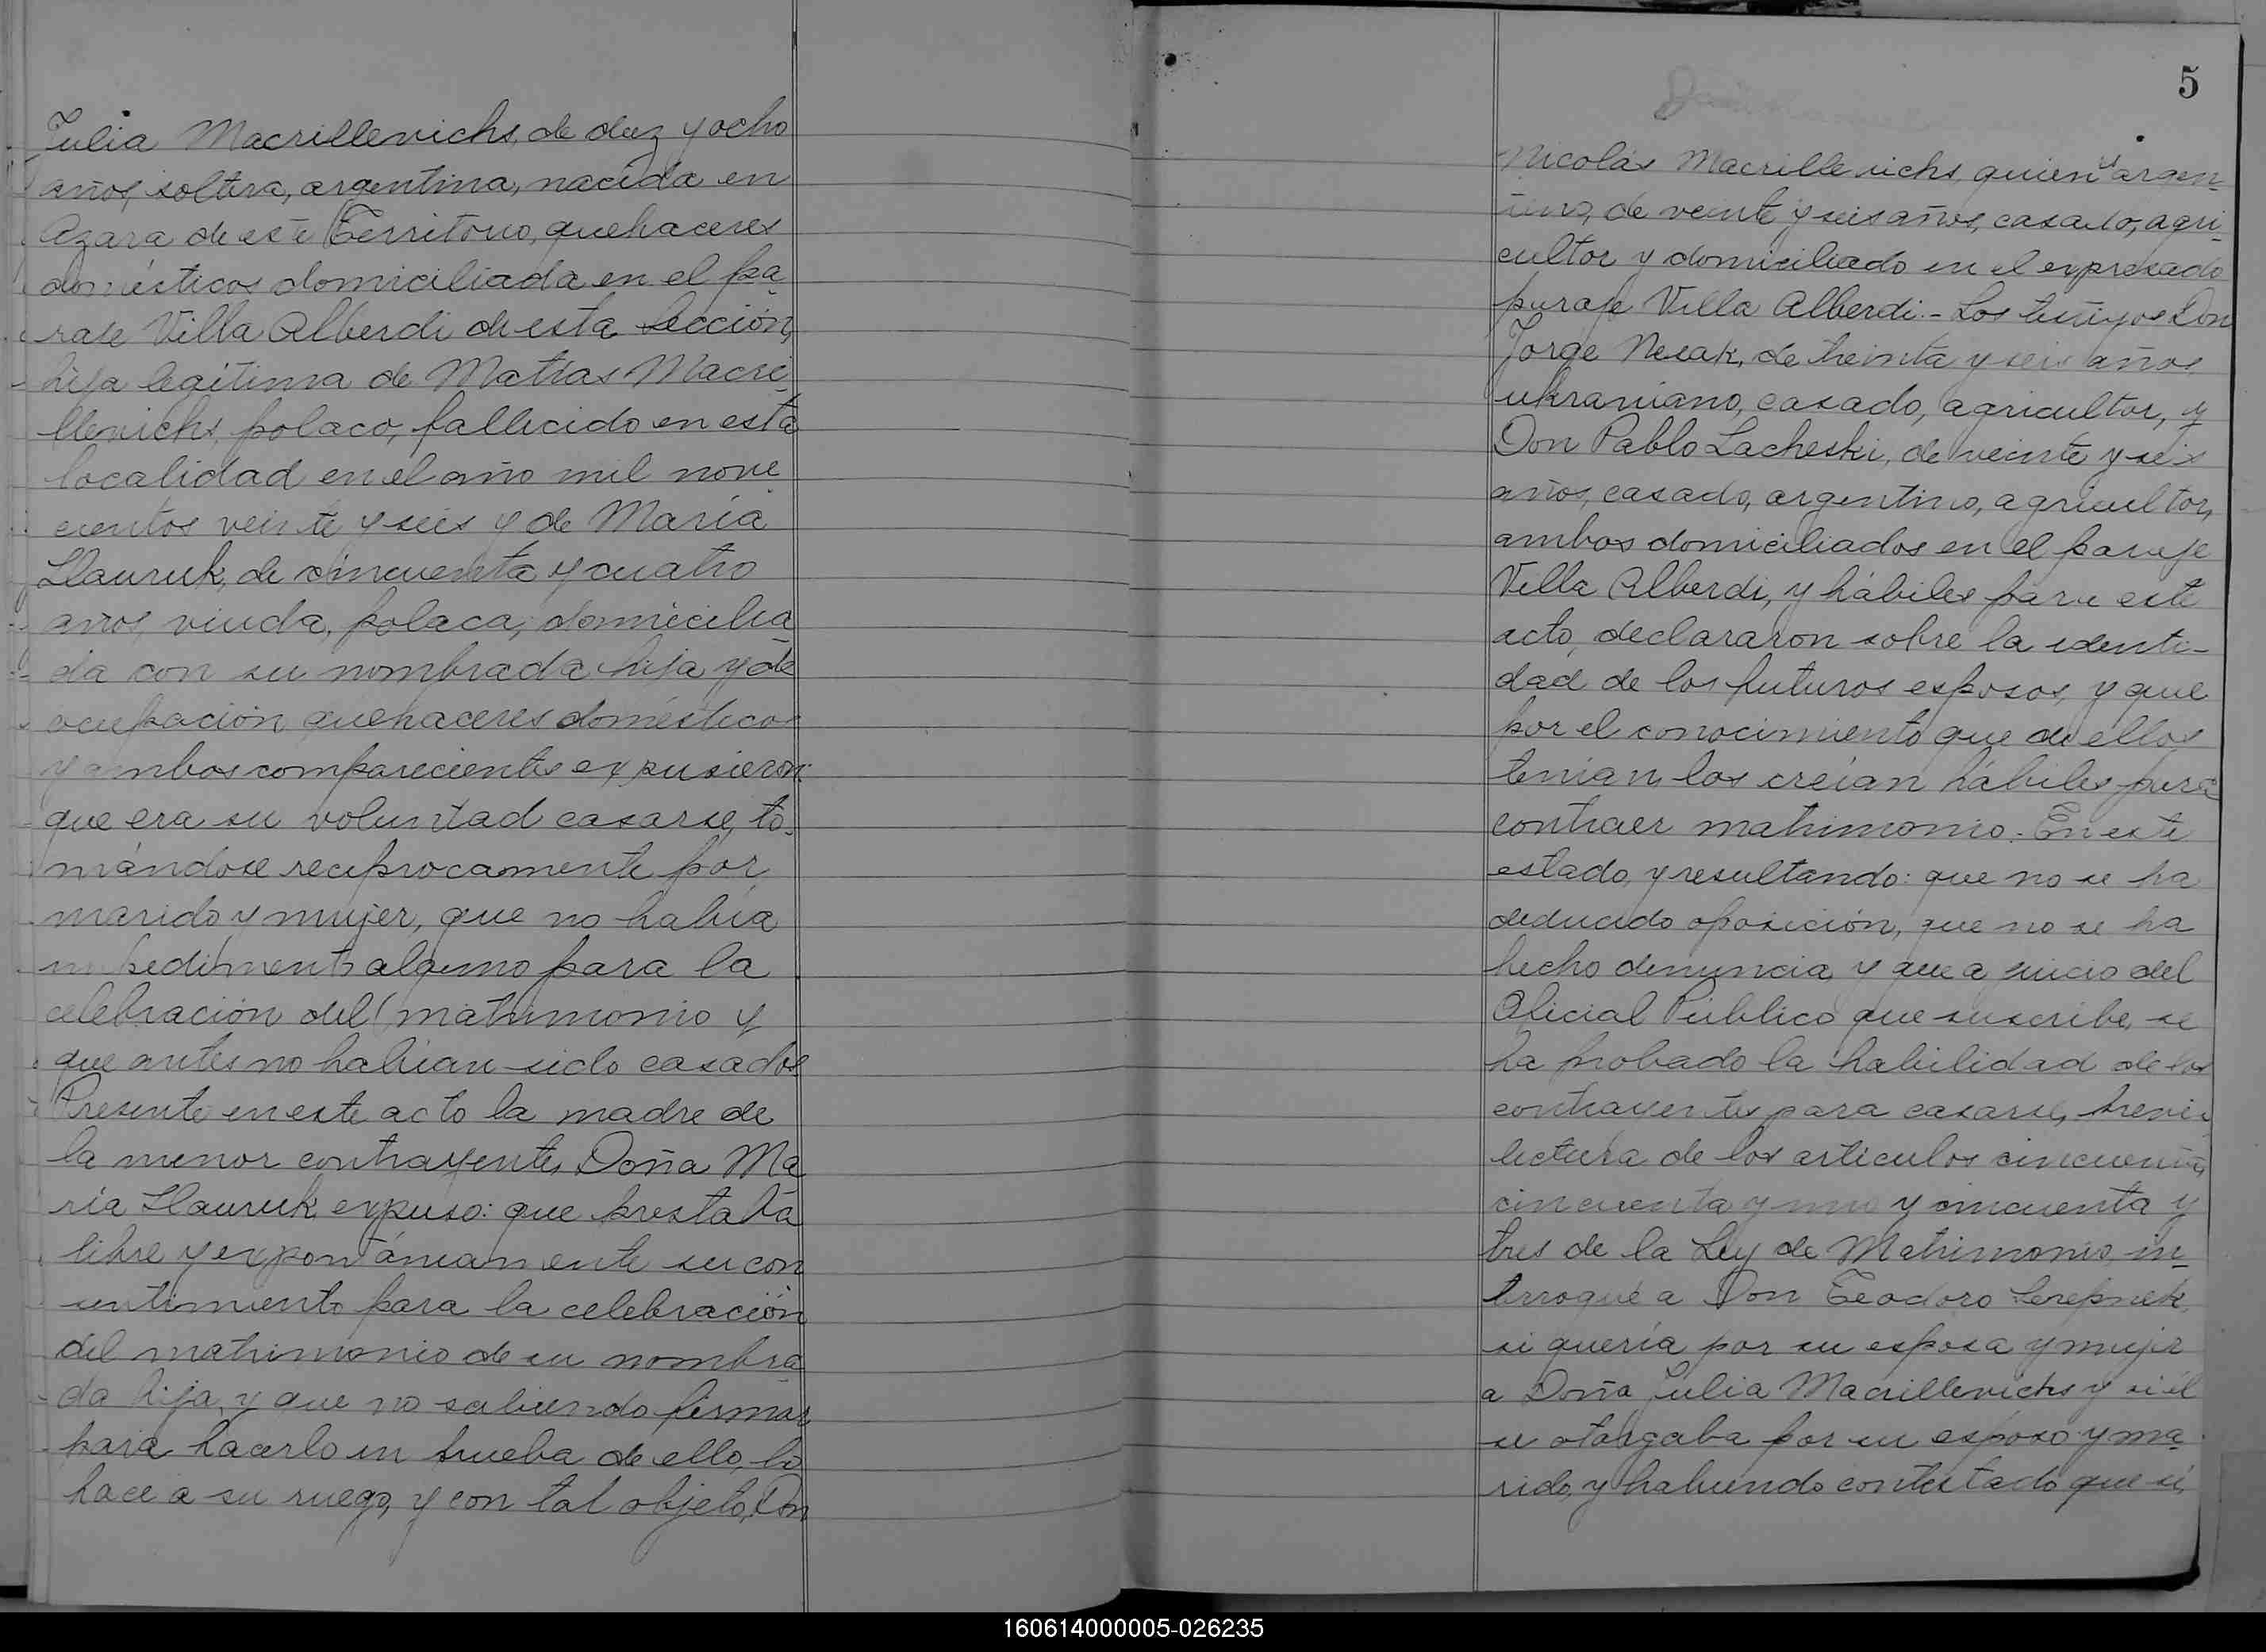 Julia Macrillevichs, de diez y ocho
años, soltera, argentina, nacida en
Azara de este Territorio, quehaceres
domésticos domiciliada en el pa
raje Villa Alberdi de esta sección,
hija legítima de Matías Macri
llevichs, polaco, fallecido en esta
localidad en el año mil nove
cientos veinte y seis y de María
Llauruk, de cincuenta y cuatro
años, viuda, polaca, domicilia
da con su nombrada hija y de
ocupación quehaceres domésticos
y ambos comparecientes expusieron:
que era su voluntad casarse, to-
mándose recíprocamente por
marido y mujer, que no había
impedimento alguno para la
celebración del matrimonio y
que antes no habían sido casados
Presente en este acto la madre de
la menor contrayente, Doña Ma
ría Llauruk, expuso: que prestaba
libre y expontáneamente su con
sentimiento para la celebración
del matrimonio de su nombra
da hija, y que no sabiendo firmar
para hacerlo en prueba de ello, lo
hace a su ruego, y con tal objeto, Don
5
Nicolás Macrillevichs, quien es argen-
tino, de veinte y seis años, casado, agri-
cultor y domiciliado en el expresado
paraje Villa Alberdi.- Los testigos Don
Jorge Nesak, de treinta y seis años
ukraniano, casado, agricultor, y
Don Pablo Lacheski, de veinte y seis
años, casado, argentino, agricultor,
ambos domiciliados en el paraje
Villa Alberdi, y hábiles para este
acto, declararon sobre la identi-
dad de los futuros esposos, y que
por el conocimiento que de ellos
tenían, los creían hábiles para
contraer matrimonio. En este
estado, y resultando: que no se ha
deducido oposición, que no se ha
hecho denuncia, y que a juicio del
Oficial Público que suscribe, se
ha probado la habilidad de los
contrayentes para casarse, previa
lectura de los artículos cincuenta,
cincuenta y uno y cincuenta y
tres de la Ley de Matrimonio, in-
terrogué a Don Teodoro Serepnek
si quería por su esposa y mujer
a Doña Julia Macrillevichs y si él
se otorgaba por su esposo y ma
rido, y habiendo contestado que sí,
160614000005-026235